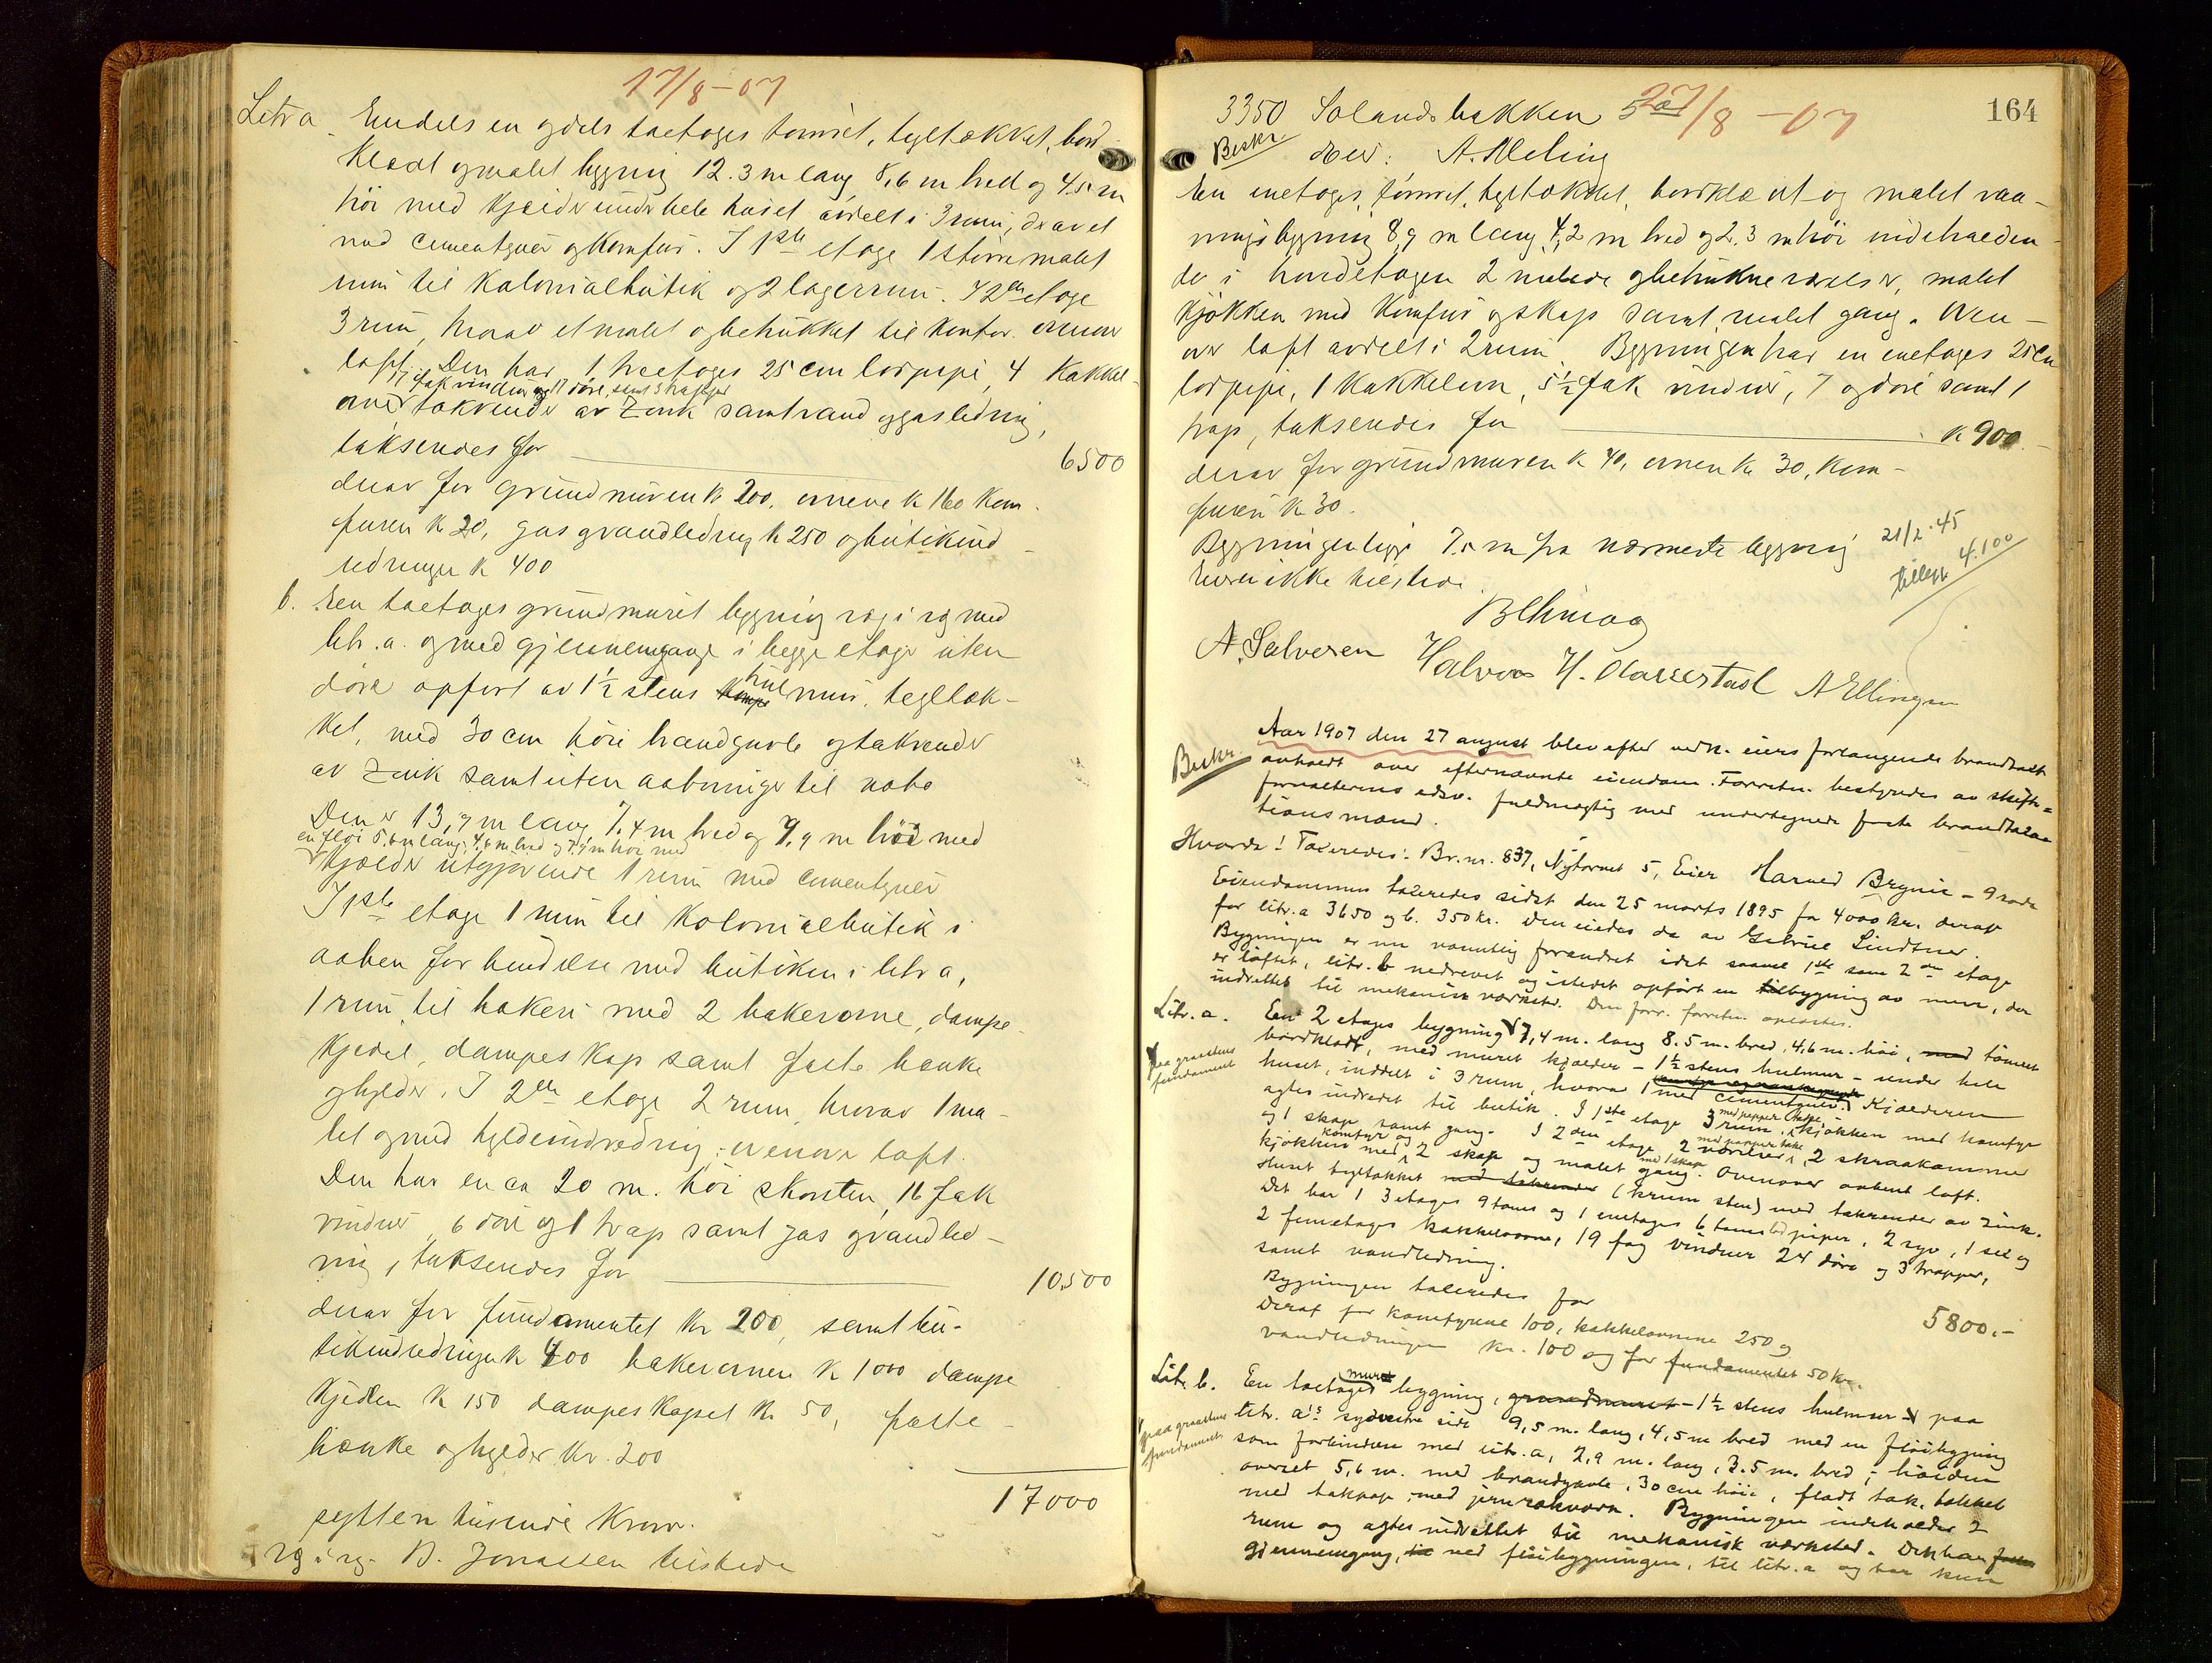 17/8-07
Litr a. Endels en og dels toetages tømret, tegltækket, bord-
klædt og malet bygning 12.3 m lang 8,6 m bred og 4.5 m
høi med kjelder under hele huset avdelt i 3 rum, derav et
med cementgulv og komfur. I 1ste etage 1 større malet
rum til kolonialbutik og 2 lagerrum. I 2den etage
3 rum, hvorav et malet og betrukket til kontor. ovenover
loft. Den har 1 treetages 25 cm lodpipe, 4 kakkel-
17 fak vinduer og 17 døre, samt 3 trapper
ovner takrender av Zink samt vand og gasledning,
taksendes for 6500
derav for grundmuren k 200, ovnene k 160 kom-
furen k 20, gas og vandledning k 250 og butikind-
redninger k 400
b. En toetages grundmuret bygning ryg i ryg med
litr. a. og med gjennemgange i begge etager uten
døre opført av 1½ stens hul mur, tegltæk-
ket, med 30 cm høie brandgavle og takrender
av Zink samt uten aabninger til nabo
Den er 13,9 m lang, 7.4 m bred og 7,9 m høi med
en fløi 5.6 m lang, 4,6 m bred og 7.9 m høi med
kjælder utgjørende 1 rum med cementgulv
I 1ste etage 1 rum til kolonialbutik i
aaben forbindelse med butiken i litr a,
1 rum til bakeri med 2 bakerovne, dampe-
kjedel, dampeskap samt faste bænke
og hylder. I 2den etage 2 rum hvorav 1 ma-
let og med hyldeindredning; ovenover loft.
Den har en ca 20 m. høi skorsten, 16 fak
vinduer, 6 døre og 1 trap samt gas og vandled-
ning, taksendes for 10.500
derav for fundamentet Kr 200, samt bu-
tikindredningen k 400 bakerovnene k 1000 dampe
kjedlen k 150 dampeskapet Kr 50, faste
bænke og hylder Kr. 200
17000
sytten tusende Kroner.
ryg i ryg. B. Jonassen tilstede
164
3350 Solandsbakken 5a 27/8 -07
Beskr. Eier: A. Meling
En enetages, tømret, tegltækket, bordklædt og malet vaa-
ningsbygning 8,9 m lang 4,2 m bred og 2.3 m høi indeholden-
de i hovedetagen 2 malede og betrukne værelser, malet
kjøkken med komfur og skap samt malet gang. Oven-
over loft avdelt i 2 rum. Bygningen har en enetages 25 cm
lodpipe, 1 kakkelovn, 5½ fak vinduer, 7 døre samt 1
trap, taksendes for k 900
derav for grundmuren k 40, ovnen kr 30, kom-
furen k 30.
Bygningen ligger 7.5 m fra nærmeste bygning
Eieren ikke tilstede.
21/2.45
tillegg 4.100
A. Salvesen Halvor H. Olausstad A Ellingsen
Beskr. Aar 1907 den 27 august blev efter vedk. eiers forlangende brandtakst
avholdt over efternævnte eiendom. Forretn. bestyredes av skifte-
forvalterens edsv. fuldmægtig med undertegnede faste brandtaxa-
tionsmænd.
Hvorda! Taxeredes: Br.nr. 837, Nytorvet 5, Eier Harved Bryni - 9 rode
Eiendommen taxeredes sidst den 25 marts 1895 for 4000 kr. deraf
for litr. a 3650 og b. 350 kr. Den eiedes da av Gabriel Lindtner.
Bygningen er nu væsentlig forandret idet saavel 1ste som 2den etage
er løftet, litr. b nedrevet og istedet opført en tilbygning av mur, der
indrettes til mekanisk værksted. Den forr. forretn. oplæstes.
Litr. a. En 2 etages bygning 7,4 m. lang 8.5 m. bred, 4,6 m. høi, med tømret
paa graastens fundament
bordklædt, med muret kjælder - 1½ stens hulmur - under hele
huset, inddelt i 3 rum, hvorav 1 med cementgulv. Kjælderen
agtes indredet til butik. I 1ste etage 3 rum, kjøkken med komfyr
og 1 skap samt gang. I 2den etage 2 værelser, 2 skraakammer
kjøkken med komfyr og 2 skap og malet gang med 1 skap. Ovenover aabent loft.
Huset tegltækket med takrender (krum sten) med takrender av zink.
Det har 1 3 etages 9 toms og 1 enetages 6 toms lodpiper, 2 ryo, 1 sel og
2 femetages kakkelovne, 19 fag vinduer 24 døre og 3 trapper,
samt vandledning.
Bygningen taxeredes for 5800.-
Deraf for komfyrene 100, kakkelovnene 250 og
vandledningen kr. 100 og for fundamentet 50 kr.
Litr. b. En toetages muret bygning, grundmuret - 1½ stens hulmur - paa
paa graastens fundament
litr. a's sydvestre side 9,5 m. lang, 4,5 m bred med en fløibygning
som forbindelse med litr. a, 2,9 m. lang, 3.5 m. bred; høiden
overalt 5,6 m. med brandgavle, 30 cm høie, fladt tak, tækket
med takpap, med jernrækværk. Bygningen indeholder 2
rum og agtes indrettet til mekanisk værksted. Den har
gjennemgang, ved fløibygningen, til litr. a og har kun